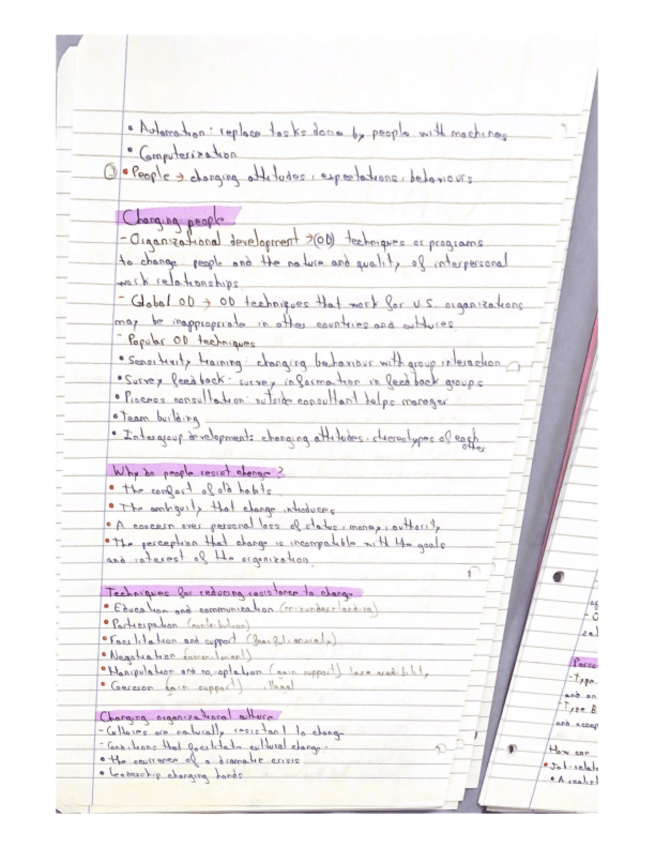 • Automation: replace tasks done by people with machines
• Computerization
③ • People → changing attitudes, expectations, behaviours
Changing people
- Organizational development → (OD) techniques or programs
to change people and the nature and quality of interpersonal
work relationships
- Global OD → OD techniques that work for U.S. organizations
may be inappropriate in other countries and cultures
- Popular OD techniques
• Sensitivity training: changing behaviour with group interaction
• Survey feedback: survey information in feedback groups
• Process consultation: outside consultant helps manager
• Team building
• Intergroup development: changing attitudes, stereotypes of each
other
Why do people resist change?
• The comfort of old habits
• The ambiguity that change introduces
• A concern over personal loss of status, money, authority
• The perception that change is incompatible with the goals
and interest of the organization
Techniques for reducing resistance to change
• Education and communication (misunderstanding)
• Participation (contribution)
• Facilitation and support (fearful, anxiety)
• Negotiation (commitment)
• Manipulation and co-optation (gain support) lose credibility
• Coercion (gain support) illegal
Changing organizational culture
- Cultures are naturally resistant to change
- Conditions that facilitate cultural change.
• the occurrence of a dramatic crisis
• leadership changing hands
- Type
and an
- Type B
and accep
How can
• Job-relate
• A realist